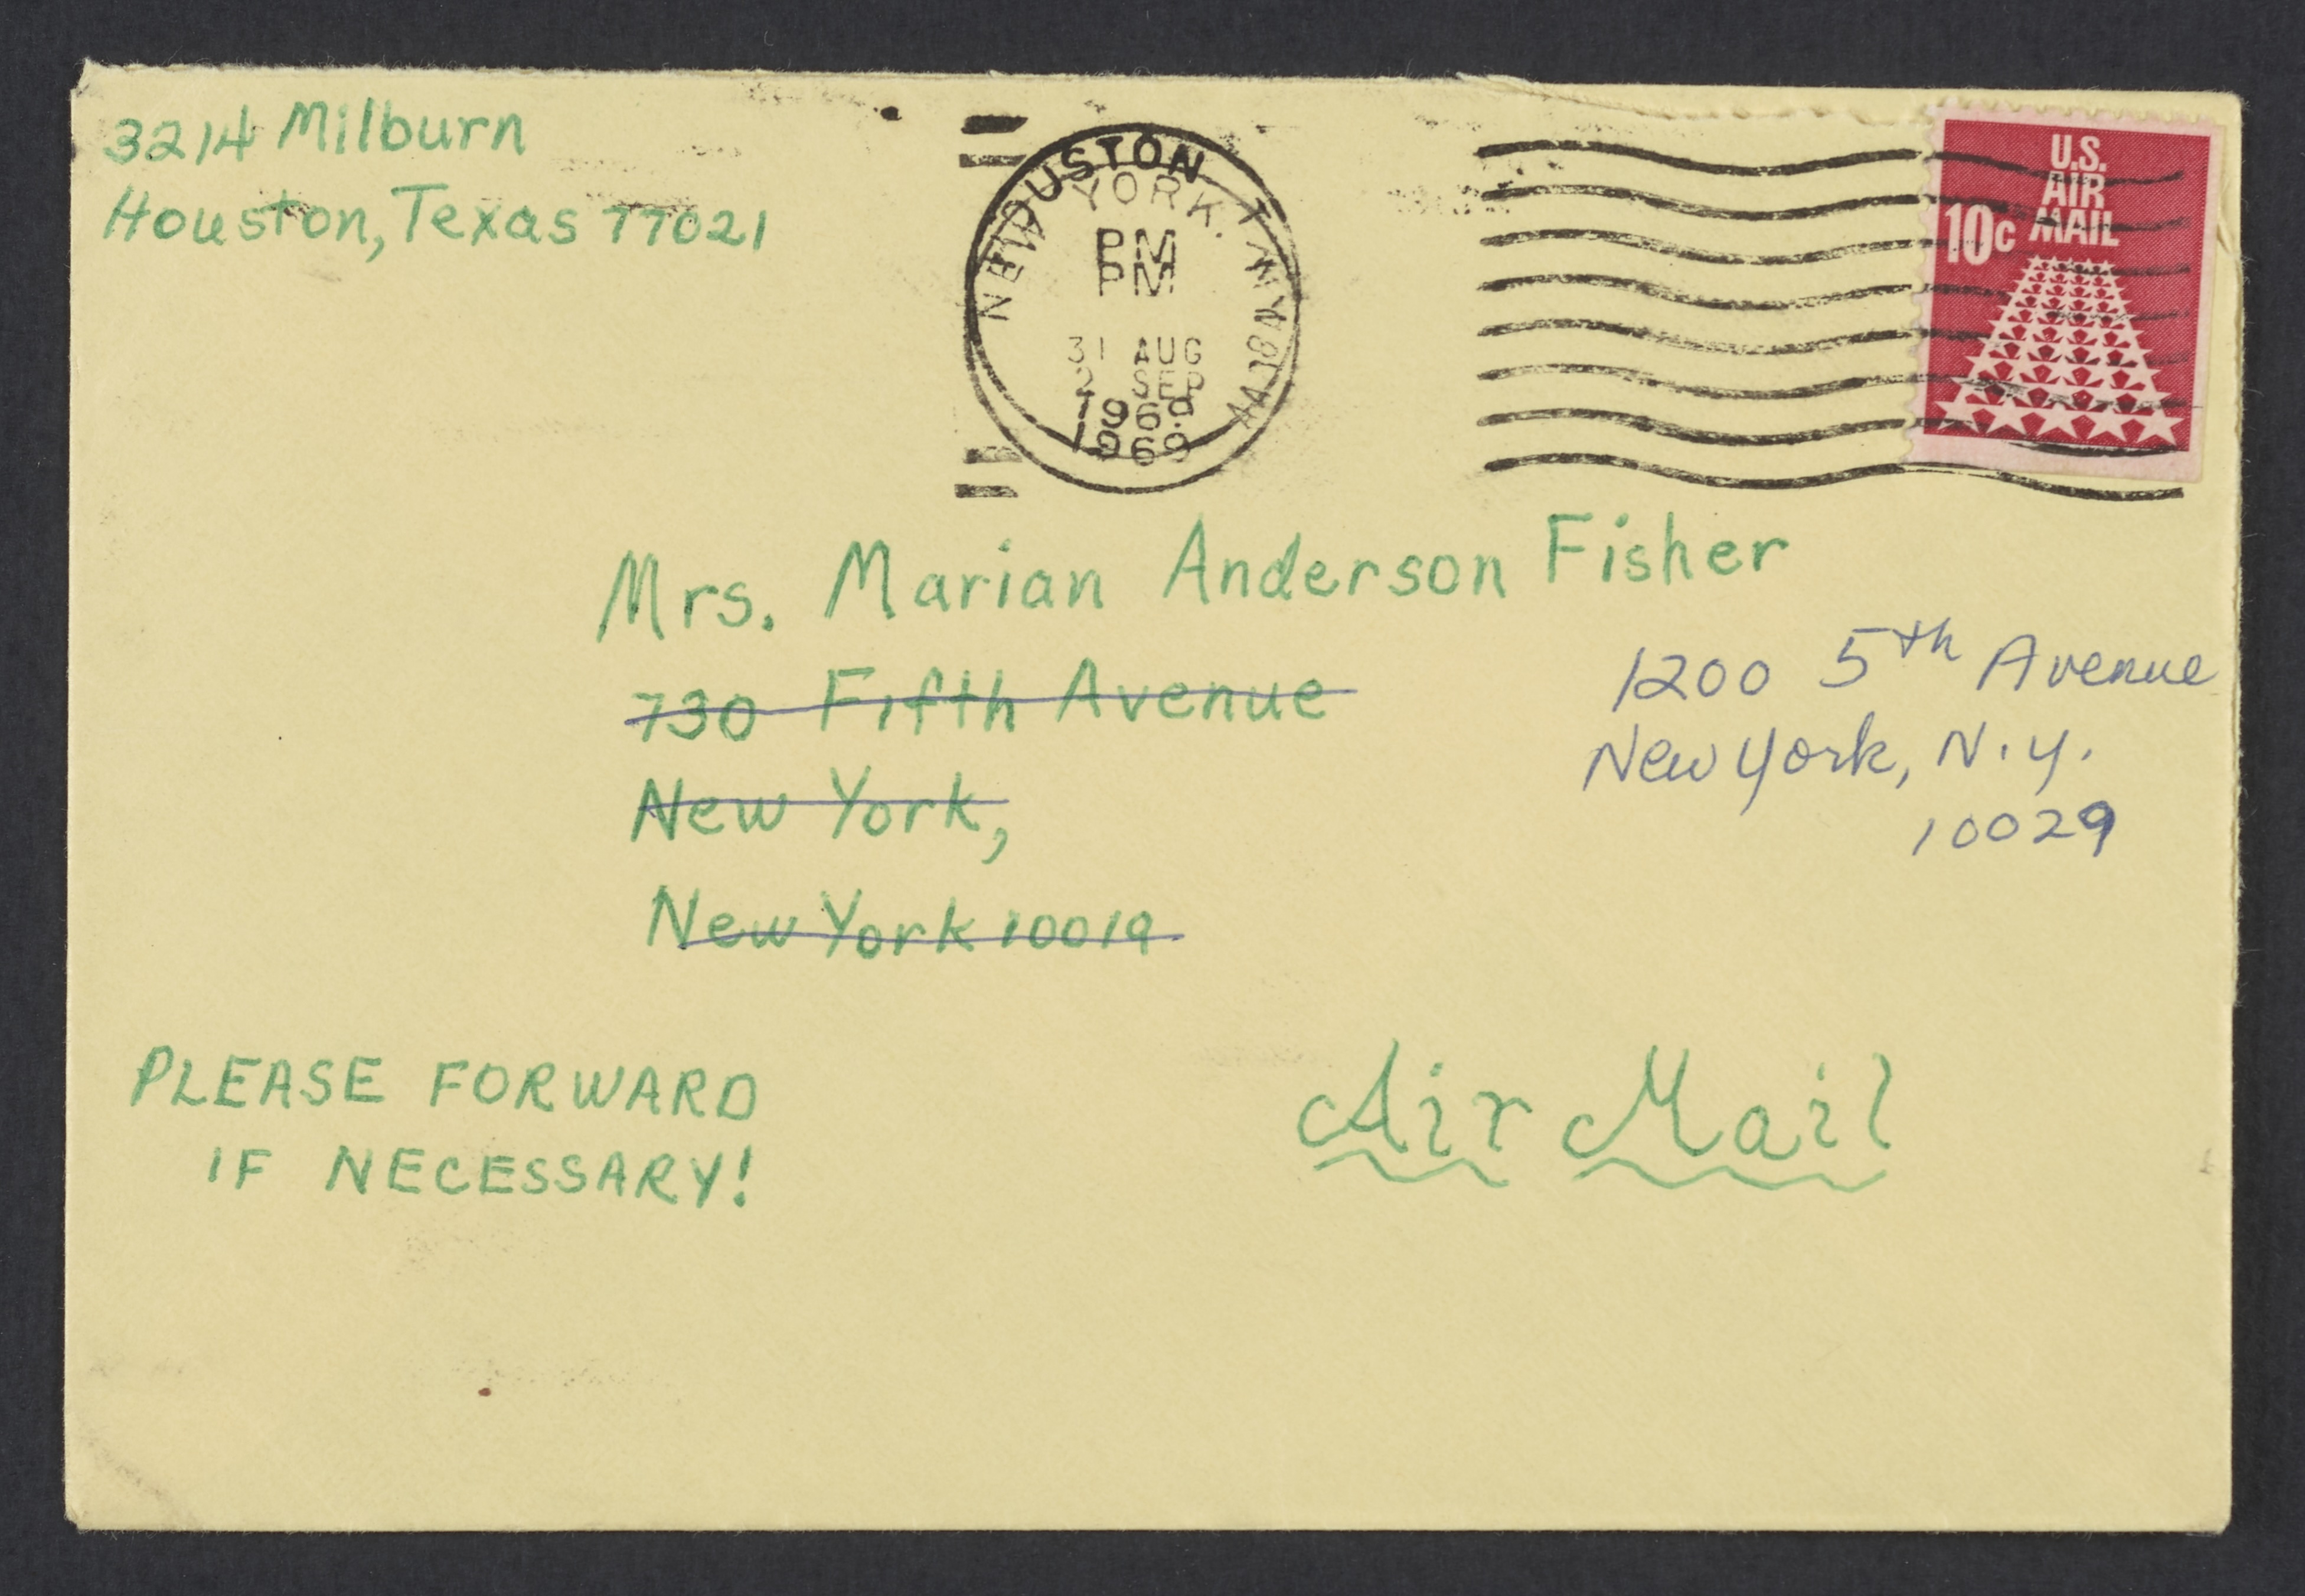 3214 Milburn
Houston, Texas 77021
HOUSTON
NEW YORK,
PM
PM
31 AUG
2 SEP
1969
1969
U.S.
AIR
MAIL
10c
Mrs. Marian Anderson Fisher
730 Fifth Avenue
New York,
New York 10019
1200 5th Avenue
New York, N.Y.
10029
PLEASE FORWARD
IF NECESSARY!
Air Mail